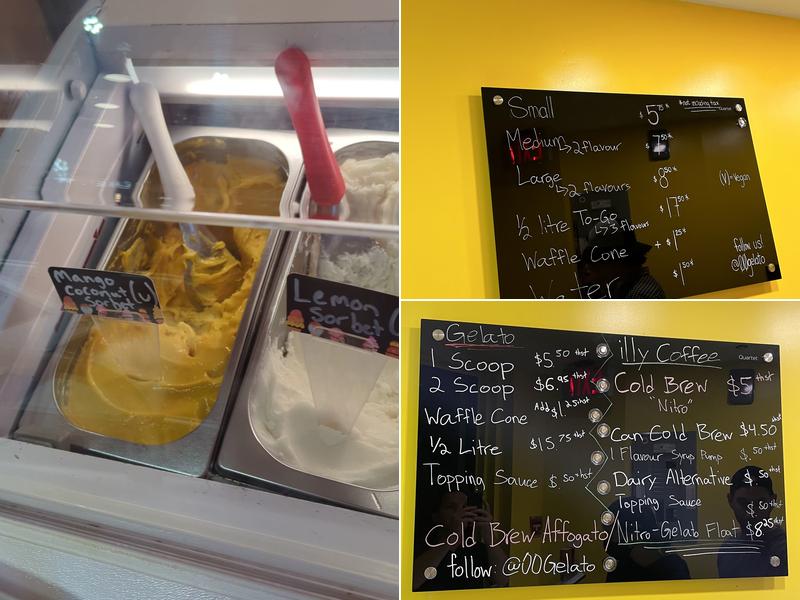 Mango
Coconut (V)
Sorbet
Lemon
Sorbet (
Small $5.75+t
*not including tax
Quartet
Medium ↳2 flavour $7.50+t
Large ↳2 flavours $8.50+t
(V)=Vegan
½ litre To-Go ↳3 flavours $17.50
Waffle Cone + $1.25+t
Water $1.50+t
follow us!
@OOgelato
Gelato
1 Scoop $5.50+hst
2 Scoop $6.95+hst
Waffle Cone Add $1.25+hst
½ Litre $15.75+hst
Topping Sauce $.50+hst
Cold Brew Affogato
follow: @OOGelato
illy Coffee
Quartet
Cold Brew $5+hst
"Nitro"
Can Cold Brew $4.50+hst
1 Flavour Syrup Pump $.50+hst
Dairy Alternative $.50+hst
Topping Sauce $.50+hst
Nitro-Gelato Float $8.25+hst